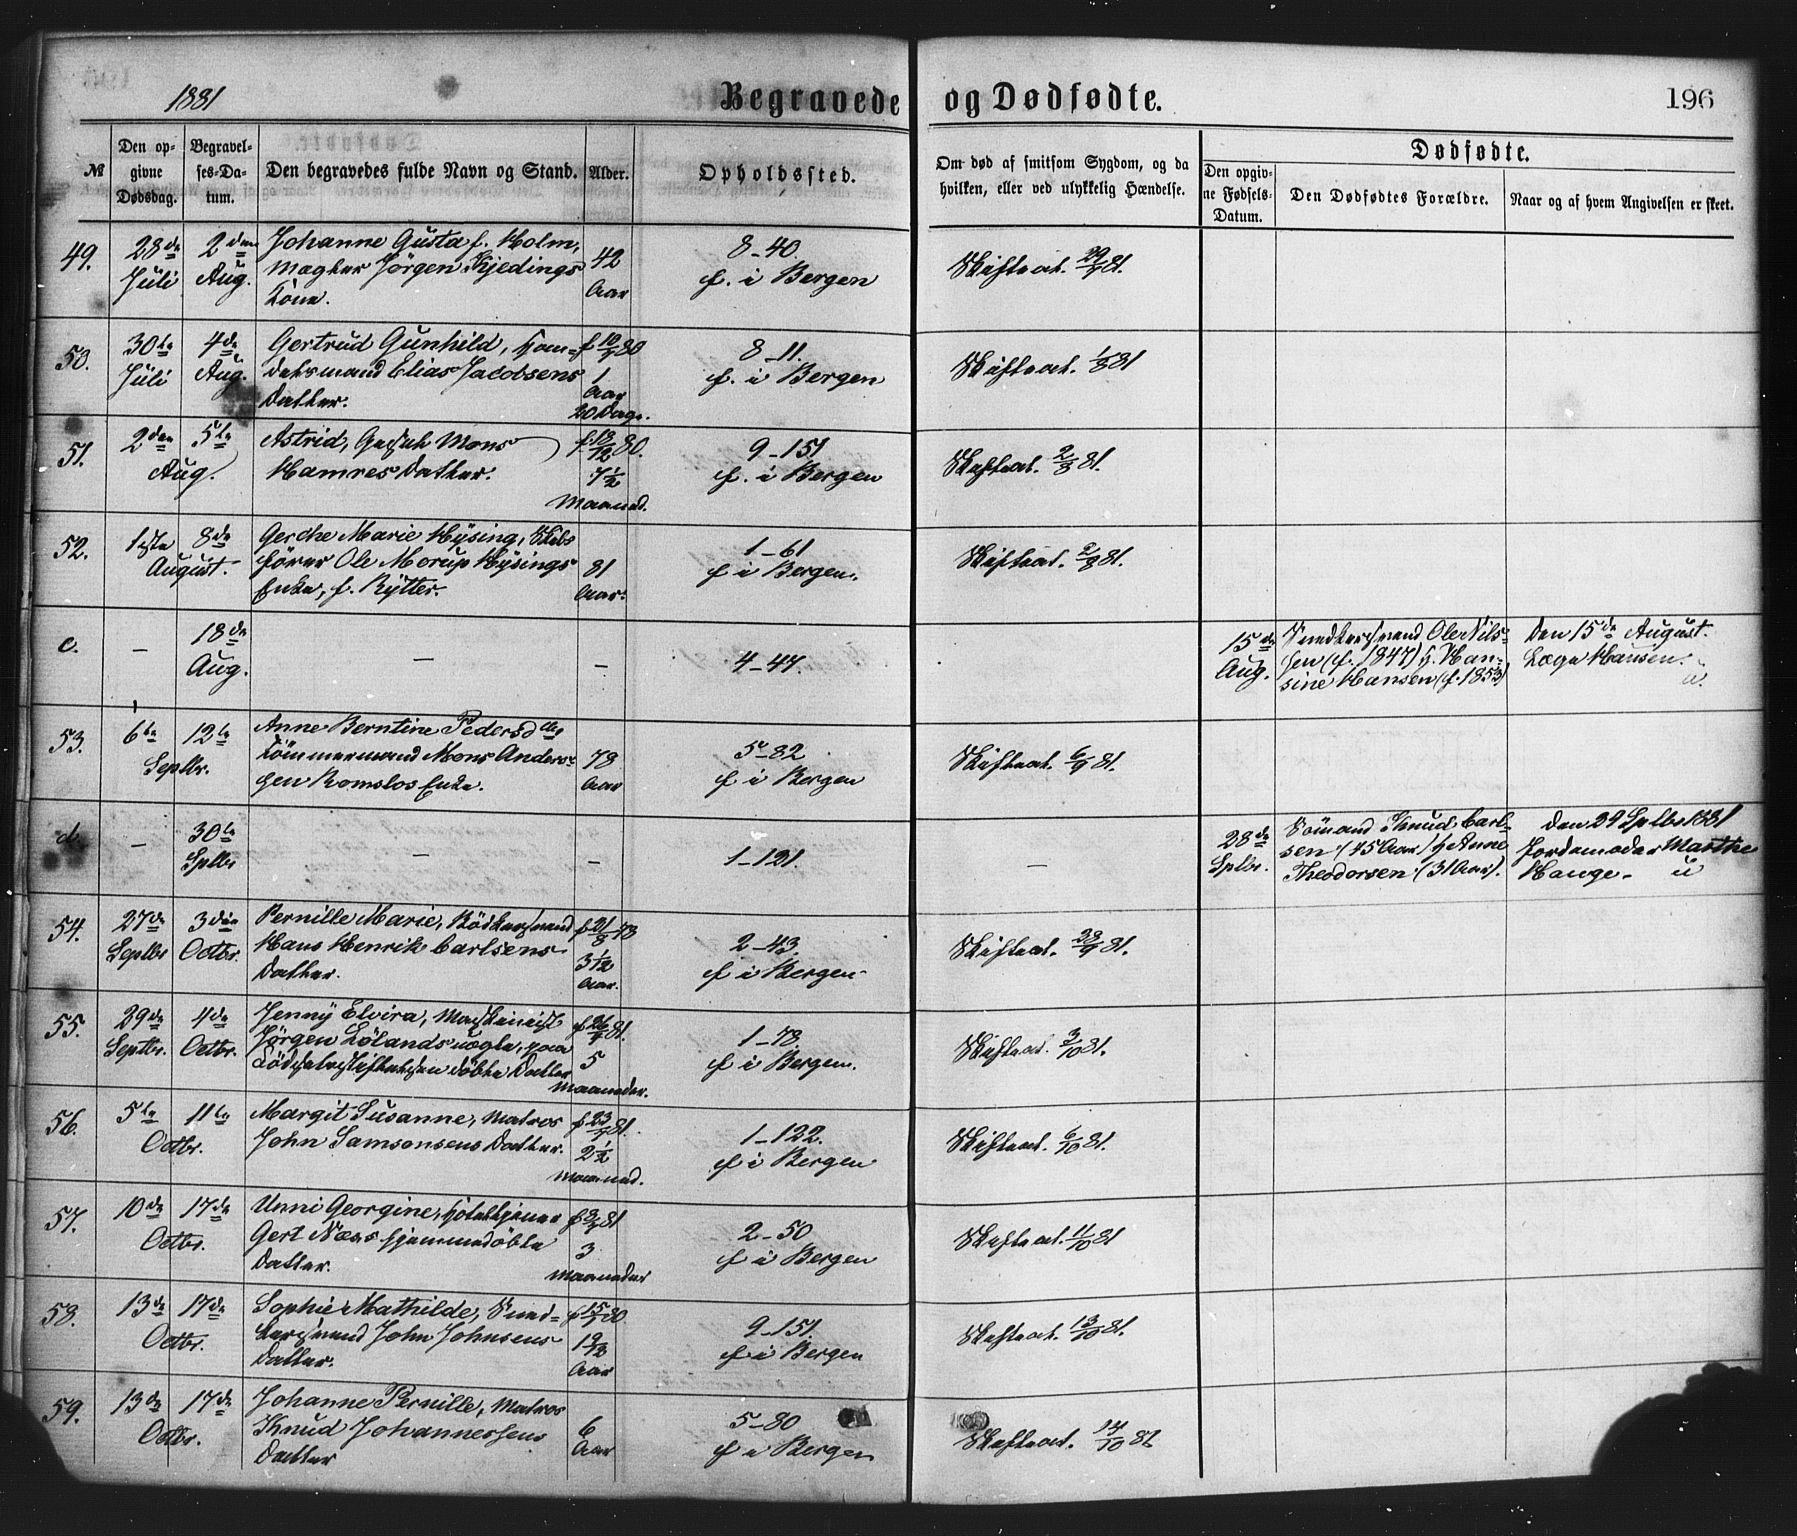 1881
Begravede og Dødfødte.
196
№
Den opgivne Dødsdag.
Begravelses-Datum.
Den begravedes fulde Navn og Stand.
Alder.
Opholdssted.
Om død af smitsom Sygdom, og da hvilken, eller ved ulykkelig Hændelse.
Dødfødte.
Den opgivne Fødsels-Datum.
Den Dødfødtes Forældre.
Naar og af hvem Angivelsen er skeet.
49. 28de Juli 2den Aug.
Johanne Gusta f. Holm,
Mægler Jørgen Kjedings
Kone.
42 Aar
8-40.
f. i Bergen
Skifteat. 29/7 81.
50. 30te Juli 4de Aug.
Gertrud Gunhild,
Elias Jacobsens
Datter.
f 10/7 80
1 Aar 20 Dage.
8-11.
f. i Bergen
Skifteat. 1/8 81
51. 2den 5te Aug.
Astrid, Mons
Hamres Datter.
f. 18/12 80.
7½ Maaned.
9-151
f. i Bergen
Skifteat. 2/8 81.
52. 1ste 8de August.
Gesche Marie Hysing, Skibs
fører Ole Morup Hysings
Enke, f. Rytter.
81 Aar.
1-61
f i Bergen.
Skifteat. 2/8 81.
c. - 18de Aug. - -
4-47.
15de Aug.
Snedkersvend Ole Nils-
sen (f. 1847) H. Han-
sine Hansen (f. 1853)
Den 15de August.
Læge Hansen.
u.
53. 6te 12te Septbr.
Anne Berntine Pedersd
Tømmermand Mons Anders-
sen Romslos Enke.
78 Aar
5-82
f i Bergen
Skifteat. 6/9 81.
d. - 30te Septbr - -
1-131.
-
28de Septbr.
Sømand Knud Carl-
sen (45 Aar) H Anne
Theodorsen (31 Aar).
Den 29 Septbr 1881
Jordemoder Marthe
Hauge. u
54. 27de Septbr 3die Octbr.
Pernille Marie, Bødkersvend
Hans Henrik Carlsens
Datter.
f 21/8 78
3 1/12 Aar.
2-43.
f i Bergen
Skifteat. 28/9 81.
55. 29de Septbr. 4de Octbr.
Jenny Elvira, Maskinist
Jørgen Lølands uægte, paa
Fødselsstiftelsen døbte Datter
f 26/4 81.
5 Maaneder.
1-78.
f i Bergen.
Skifteat. 3/10 81.
56. 5te 11te Octbr.
Margit Susanne, Matros
John Samsonsens Datter.
f 23/7 81.
2½ Maaned.
1-122.
f i Bergen
Skifteat. 6/10 81.
57. 10de 17de Octbr.
Unni Georgine, Hoteltjener
Gert Næss hjemmedøbte
Datter.
3 Maaneder
2-50
f i Bergen
Skifteat. 11/10 81
58. 13de 17de Octbr.
Sophie Mathilde, Sned-
kersvend John Johnsens
Datter.
f 15/1 80
1 9/12 Aar
9-151.
f i Bergen
Skifteat. 13/10 81.
59. 13de 17de Octbr.
Johanne Pernille, Matros
Knud Johannessens
Datter
6 Aar
5-80
f i Bergen
Skifteat. 14/10 81.